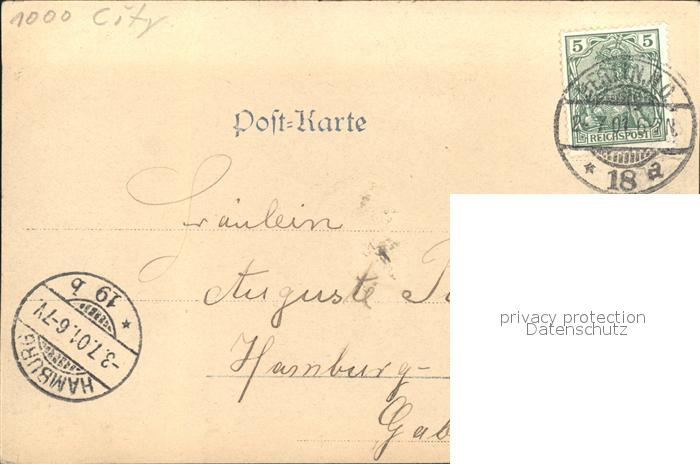 1000 City
5 5
REICHSPOST
BERLIN, N.O.
7.01.
* 18 a
Post=Karte
Fräulein
Auguste
Hamburg-
Gab
HAMBURG
-3.7.01.6-7V.
* 19 b
privacy protection
Datenschutz